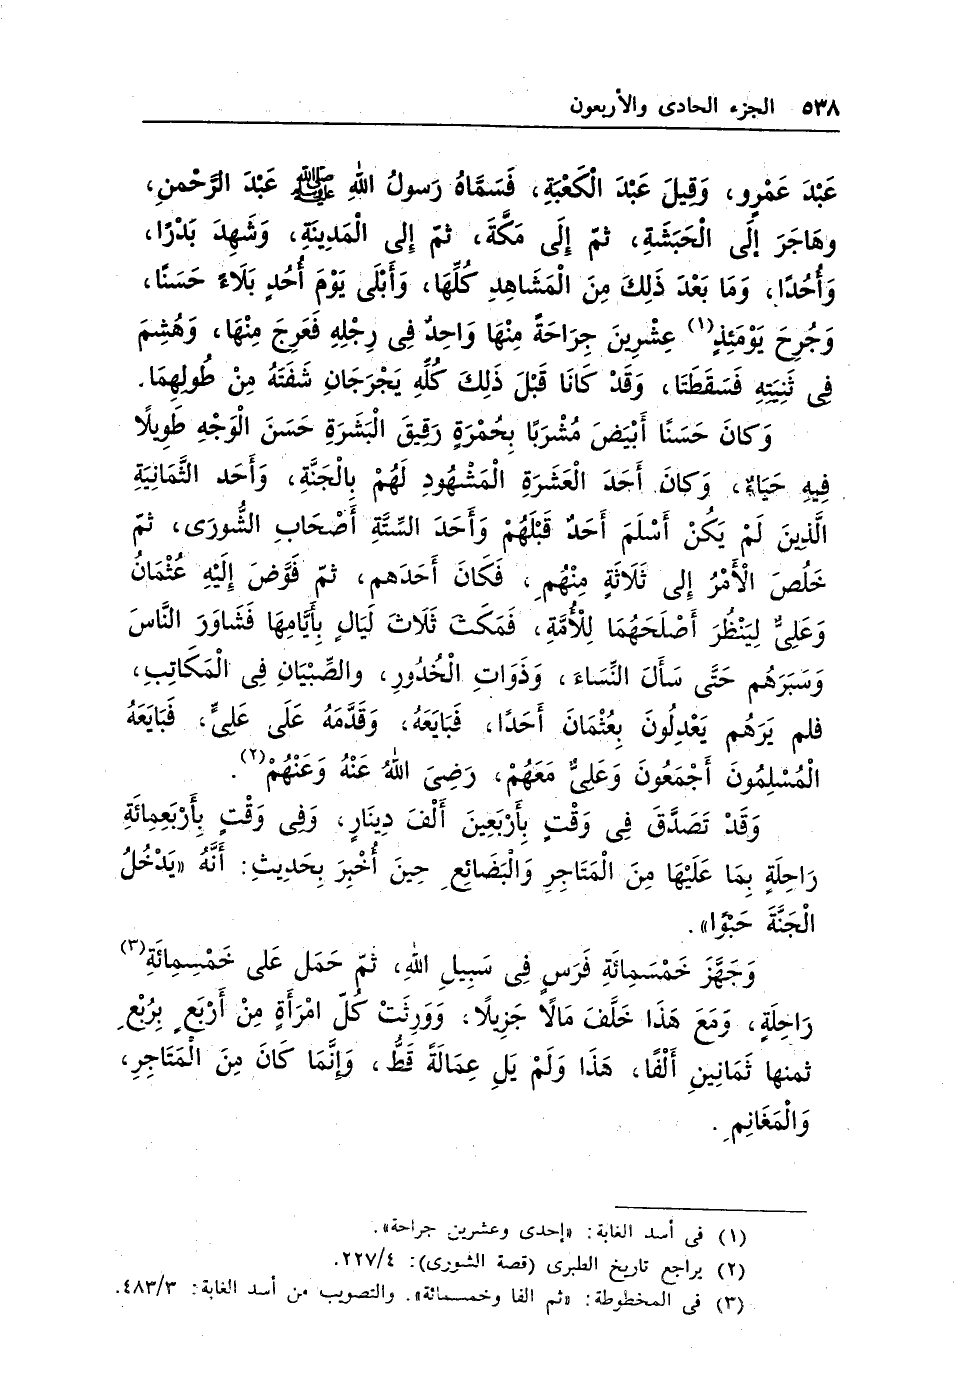 ٥٣٨ الجزء الحادى والأربعون
عَبْدَ عَمْرٍو، وَقِيلَ عَبْدَ الْكَعْبَةِ، فَسَمَّاهُ رَسولُ اللهِ ﷺ عَبْدَ الرَّحْمنِ،
وهَاجَرَ إلَى الْحَبَشَةِ، ثمّ إلَى مَكَّةَ، ثمّ إلى الْمَدِينَةِ، وَشَهِدَ بَدْرًا،
وَأُحُدًا، وَمَا بَعْدَ ذَلِكَ مِنَ الْمَشَاهِدِ كُلِّهَا، وَأَبْلَى يَوْمَ أُحُدٍ بَلَاءً حَسَنًا،
وَجُرِحَ يَوْمَئِذٍ(١) عِشْرِينَ جِرَاحَةً مِنْهَا وَاحِدٌ فِى رِجْلِهِ فَعَرِجَ مِنْهَا، وَهُشِمَ
فِى ثَنِيَتِهِ فَسَقَطَتَا، وَقَدْ كَانَا قَبْلَ ذَلِكَ كُلِّهِ يَجْرَحَانِ شَفَتَهُ مِنْ طُولِهِمَا.
وَكانَ حَسَنًا أَبْيَضَ مُشْرَبًا بِحُمْرَةٍ رَقِيقَ الْبَشَرَةِ حَسَنَ الْوَجْهِ طَوِيلًا
فِيهِ حَيَاءٌ، وَكانَ أَحَدَ الْعَشَرَةِ الْمَشْهُودِ لَهُمْ بِالْجَنَّةِ، وَأَحَد الثَّمَانِيَةِ
الَّذِينَ لَمْ يَكُنْ أَسْلَمَ أَحَدٌ قَبْلَهُمْ وَأَحَدَ السِّتَّةِ أَصْحَابِ الشُّورَى، ثمّ
خَلُصَ الْأَمْرُ إلى ثَلَاثَةٍ مِنْهُمِ، فَكَانَ أَحَدَهم، ثمّ فَوَّضَ إلَيْهِ عُثْمَانُ
وَعَلِىٌّ لِيَنْظُرَ أَصْلَحَهُمَا لِلْأُمَّةِ، فَمَكَثَ ثَلَاثَ لَيَالٍ بِأَيَّامِهَا فَشَاوَرَ النَّاسَ
وَسَبَرَهُم حَتَّى سَأَلَ النِّسَاءَ، وَذَوَاتِ الْخُدُورِ، والصِّبْيَانِ فِى الْمَكَاتِبِ،
فلم يَرَهُم يَعْدِلُونَ بِعُثْمَانَ أَحَدًا، فَبَايَعَهُ، وَقَدَّمَهُ عَلَى عَلِىٍّ، فَبَايَعَهُ
الْمُسْلِمُونَ أَجْمَعُونَ وَعَلِىٌّ مَعَهُمْ، رَضِىَ اللهُ عَنْهُ وَعَنْهُمْ(٢).
وَقَدْ تَصَدَّقَ فِى وَقْتٍ بِأَرْبَعِينَ أَلْفَ دِينَارٍ، وَفِى وَقْتٍ بِأَرْبَعِمِائَةِ
رَاحِلَةٍ بِمَا عَلَيْهَا مِنَ الْمَتَاجِرِ وَالْبَضَائِعِ حِينَ أُخْبِرَ بِحَدِيثِ: أَنَّهُ «يَدْخُلُ
الْجَنَّةَ حَبْوًا».
وَجَهَّزَ خَمْسَمِائَةِ فَرَسٍ فِى سَبِيلِ اللهِ، ثمّ حَمَل عَلى خَمْسِمِائَةِ(٣)
رَاحِلَةٍ، وَمَعَ هَذَا خَلَّفَ مَالًا جَزِيلًا، وَوَرِثَتْ كُلّ امْرَأَةٍ مِنْ أَرْبَعٍ بِرُبْعِ
ثمنها ثَمَانِينِ أَلْفًا، هَذَا وَلَمْ يَلِ عِمَالَةً قَطُّ، وَإِنَّمَا كَانَ مِنَ الْمَتَاجِرِ،
وَالْمَغَانِمِ.
(١) فى أسد الغابة: «إحدى وعشرين جراحة».
(٢) يراجع تاريخ الطبرى (قصة الشورى): ٢٢٧/٤.
(٣) فى المخطوطة: «ثم الفا وخمسمائة». والتصويب من أسد الغابة: ٤٨٣/٣.